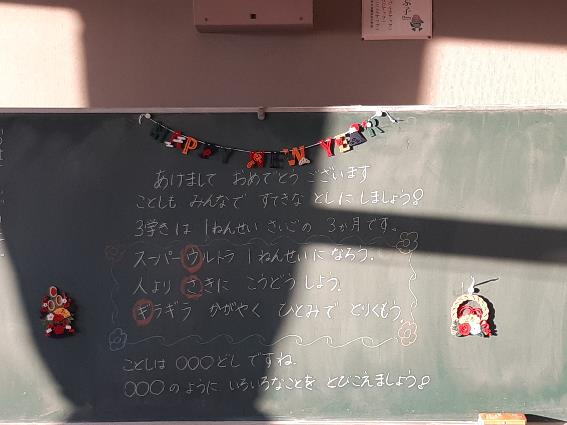 HAPPY NEW YEAR
あけまして おめでとう ございます
ことしも みんなで すてきな としに しましょう!
3学きは 1ねんせい さいごの 3か月です。
スーパーウルトラ 1ねんせいに なろう。
人より さきに こうどう しよう。
ギラギラ かがやく ひとみで とりくもう。
ことしは ○○○どし ですね。
○○○のように いろいろなことを とびこえましょう!